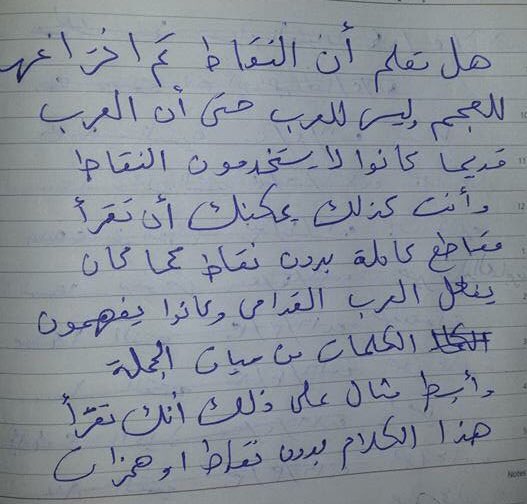 هل تعلم أن النقاط تم اختراعها
للعجم وليس للعرب حتى أن العرب
قديما كانوا لا يستخدمون النقاط
وأنت كذلك يمكنك أن تقرأ
مقاطع كاملة بدون نقاط كما كان
يفعل العرب القدامى وكانوا يفهمون
الكلمات من سياق الجملة
وأبسط مثال على ذلك أنك تقرأ
هذا الكلام بدون نقاط او همزات